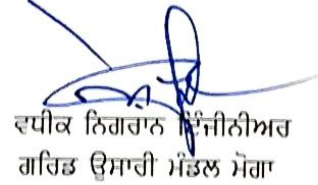 ਵਧੀਕ ਨਿਗਰਾਨ ਇੰਜੀਨੀਅਰ
ਗਰਿਡ ਉਸਾਰੀ ਮੰਡਲ ਮੋਗਾ